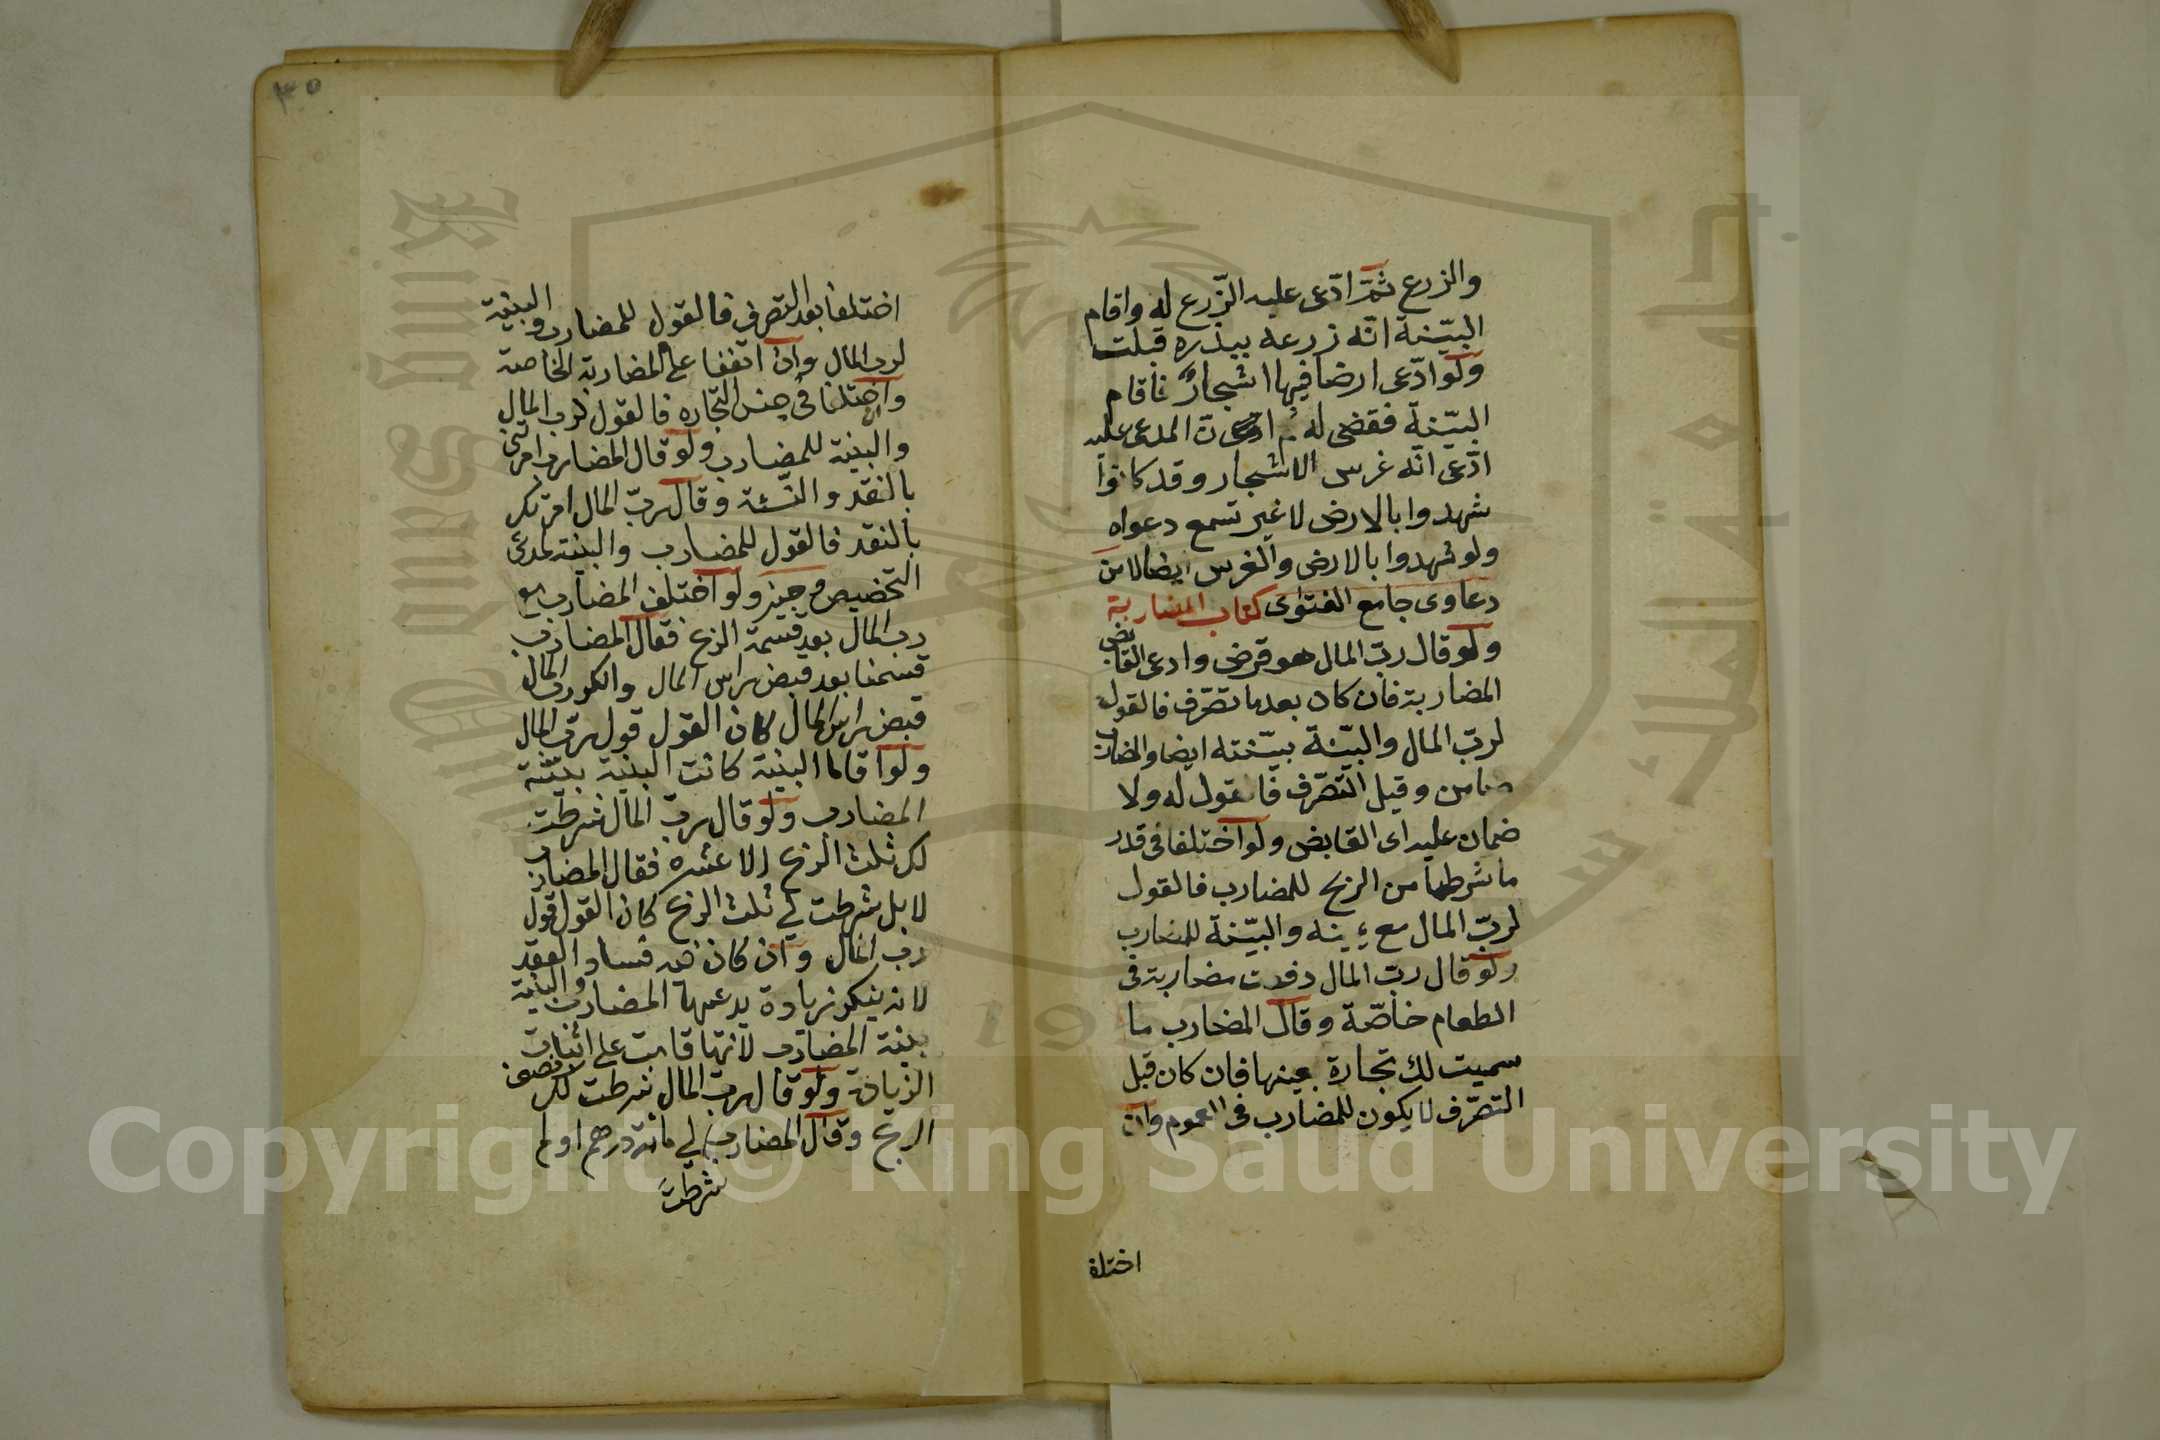 والزرع ثمّ ادّعى عليه الزّرع له واقام
البيّنة انّه زرعه ببذره قبلت
ولو ادّعى ارضا فيها اشجارٌ فاقام
البيّنة فقضى له ثم المدعى عليه
ادّعى انّه غرس الاشجار وقد كانوا
شهدوا بالارض لا غير تسمع دعواه
ولو شهدوا بالارض والغرس ايضا لا من
دعاوى جامع الفتوى كتاب المضاربة
ولو قال ربّ المال هو قرض وادعى القابض
المضاربة فان كان بعد ما تصرّف فالقول
لربّ المال والبيّنة بيّنته ايضا والمضارب
ضامن وقبل التصّرف فالقول له ولا
ضمان عليه اى القابض ولو اختلفا فى قدر
ما شرطها من الربح للمضارب فالقول
لربّ المال مع يمينه والبيّنة للمضارب
ولو قال ربّ المال دفعت مضاربة فى
الطعام خاصّة وقال المضارب ما
سميت لك تجارة بعينها فان كان قبل
التصّرف لا يكون للمضارب فى العموم وان
اختلفا
٣٥
اختلفا بعد التصرف فالقول للمضارب والبينة
لرب المال وان اتفقا على المضاربة الخاصة
واختلفا فى جنس التجاره فالقول لرب المال
والبينة للمضارب ولو قال المضارب امرتنى
بالنقد والنّسئة وقال ربّ المال امرتك
بالنقد فالقول للمضارب والبينة لمدعى
التخصيص وجيز ولو اختلف المضارب مع
رب المال بعد قسمة الربح فقال المضارب
قسمنا بعد قبض راس المال وانكر رب المال
قبض راس المال كان القول قول ربّ المال
ولو اقاما البينة كانت البينة بينة
المضارب ولو قال ربّ المال شرطت
لك ثلث الربح الا عشره فقال المضارب
لا بل شرطت لي ثلث الربح كان القول قول
رب المال وان كان فيه فساد العقد
لانه ينكر زيادة يدعيها المضارب والبينة
بينة المضارب لانها قامت على اثبات
الزيادة ولو قال رب المال شرطت لك نصف
الربح وقال المضارب لي مائة درهم او لم
شرطت
Copyright © King Saud University
King Saud University
جامعة الملك سعود
1957